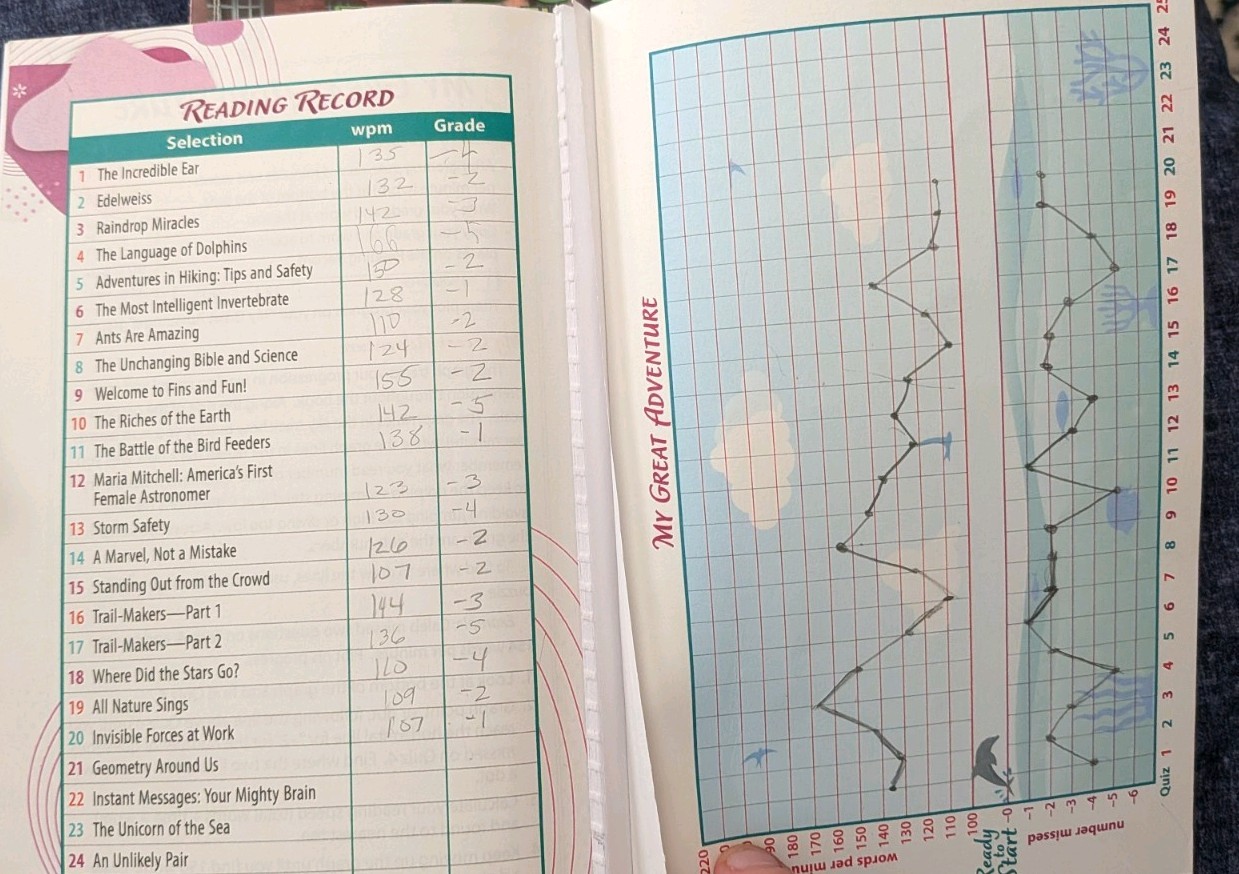 READING RECORD
Selection wpm Grade
1 The Incredible Ear 135 -4
2 Edelweiss 132 -2
3 Raindrop Miracles 142 -3
4 The Language of Dolphins 166 -5
5 Adventures in Hiking: Tips and Safety 150 -2
6 The Most Intelligent Invertebrate 128 -1
7 Ants Are Amazing 110 -2
8 The Unchanging Bible and Science 124 -2
9 Welcome to Fins and Fun! 155 -2
10 The Riches of the Earth 142 -5
11 The Battle of the Bird Feeders 138 -1
12 Maria Mitchell: America's First
Female Astronomer 123 -3
13 Storm Safety 130 -4
14 A Marvel, Not a Mistake 126 -2
15 Standing Out from the Crowd 107 -2
16 Trail-Makers—Part 1 144 -3
17 Trail-Makers—Part 2 136 -5
18 Where Did the Stars Go? 110 -4
19 All Nature Sings 109 -2
20 Invisible Forces at Work 107 -1
21 Geometry Around Us
22 Instant Messages: Your Mighty Brain
23 The Unicorn of the Sea
24 An Unlikely Pair
MY GREAT ADVENTURE
220
180
170
160
150
140
130
120
110
100
words per
Ready
to
Start
-0
-1
-2
-3
-4
-5
-6
number missed
Quiz 1 2 3 4 5 6 7 8 9 10 11 12 13 14 15 16 17 18 19 20 21 22 23 24